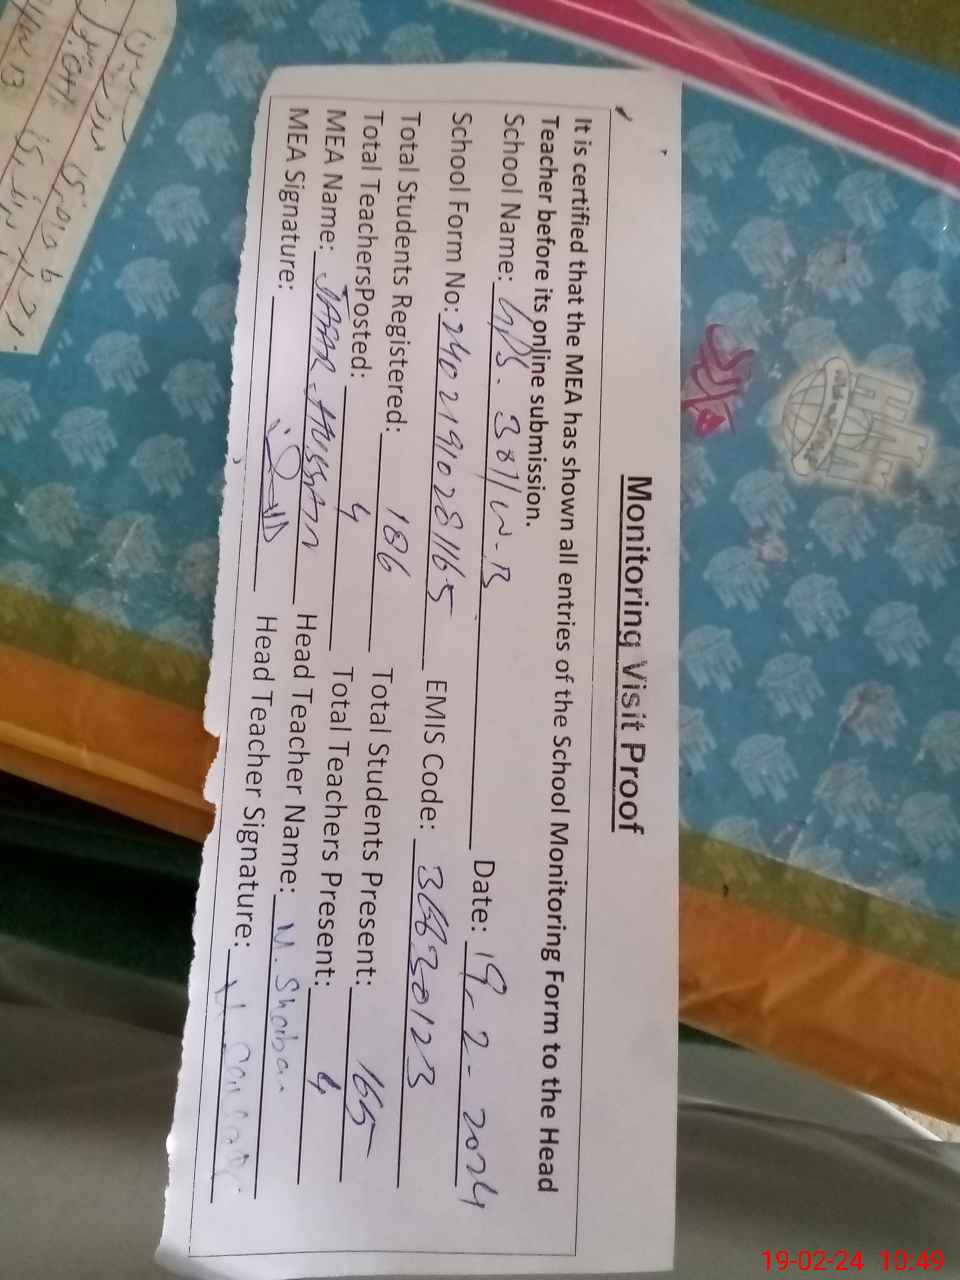 Monitoring Visit Proof
It is certified that the MEA has shown all entries of the School Monitoring Form to the Head
Teacher before its online submission.
School Name: GPS. 381/W-B Date: 19-2-2024
School Form No: 24021910281165 EMIS Code: 36630123
Total Students Registered: 186 Total Students Present: 165
Total TeachersPosted: 4 Total Teachers Present: 4
MEA Name: JAFAR HUSSAIN Head Teacher Name: M. Shaiban
MEA Signature: Head Teacher Signature:
19-02-24 10:49